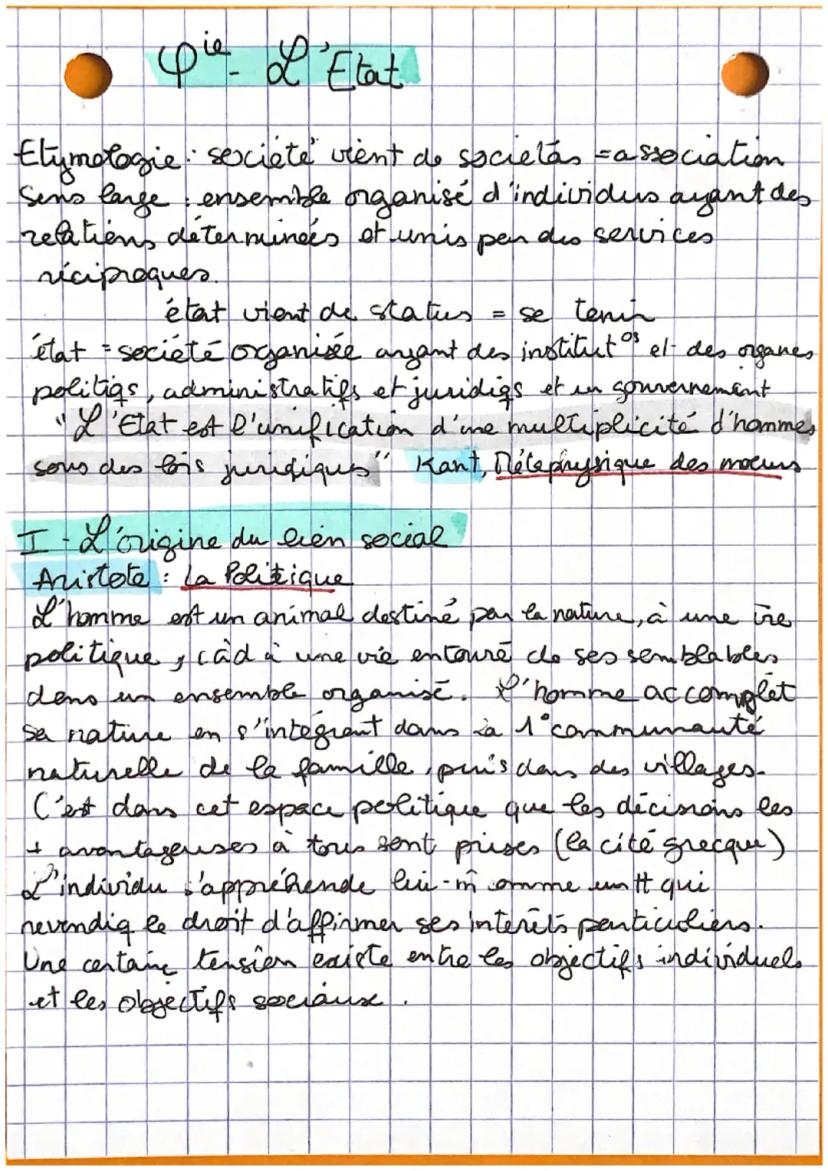 φie - L'Etat
Etymologie : société vient de societas = association
sens large : ensemble organisé d'individus ayant des
relations déterminées et unis par des services
réciproques.
état vient de status = se tenir
état = société organisée ayant des institut°s et des organes
politiqs, administratifs et juridiqs et un gouvernement
"L'Etat est l'unification d'une multiplicité d'hommes
sous des lois juridiques" Kant, Métaphysique des moeurs
I - L'origine du lien social
Aristote : La Politique
L'homme est un animal destiné par la nature, à une vie
politique, càd à une vie entouré de ses semblables
dans un ensemble organisé. L'homme accomplit
sa nature en s'intégrant dans la 1° communauté
naturelle de la famille, puis dans des villages.
C'est dans cet espace politique que les décisions les
+ avantageuses à tous sont prises (la cité grecque)
L'individu s'appréhende lui-m̂ omme un tt qui
revendiq le droit d'affirmer ses intérêts particuliers.
Une certaine tension existe entre les objectifs individuels
et les objectifs sociaux.